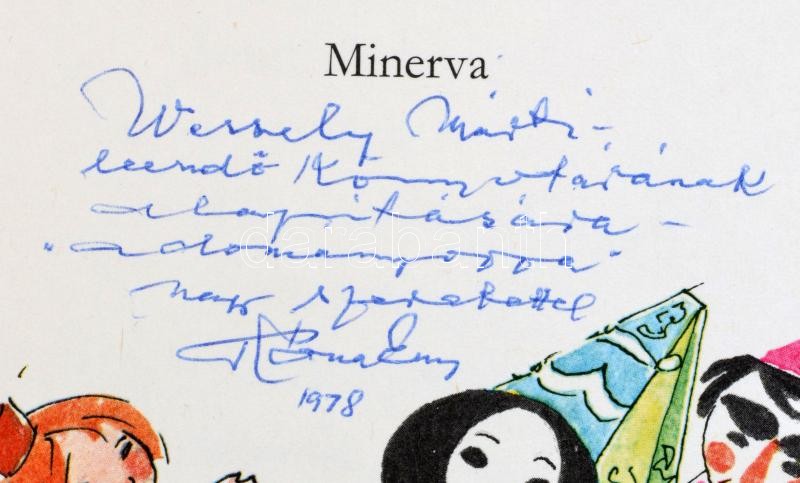 Minerva
Wessely Márti –
leendő Könyvtárának
alapítására –
"adományozza"
nagy szeretettel
Róna Emy
1978
darabanth